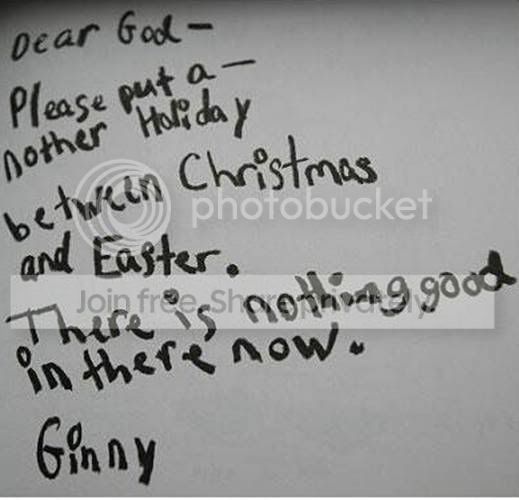 Dear God –
Please put a –
nother Holiday
between Christmas
and Easter.
There is nothing good
in there now.
Ginny
photobucket
Join free. Share privately